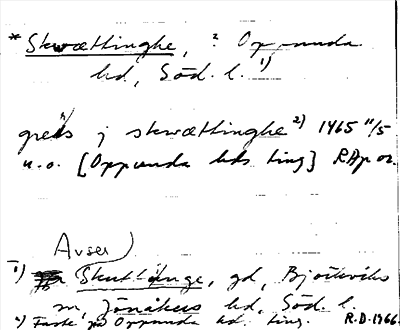 * Skwættinghe, ? Oppunda
hd, Söd. l. 1)
greis j skwættinghe 2) 1465 11/5
u.o. [Oppunda hds ting] RAp or.
Avser
1) Skutlänge, gd, Björkviks
sn, Jönåkers hd, Söd. l.
2) Faste på Oppunda hd. ting. R.D. 1966.